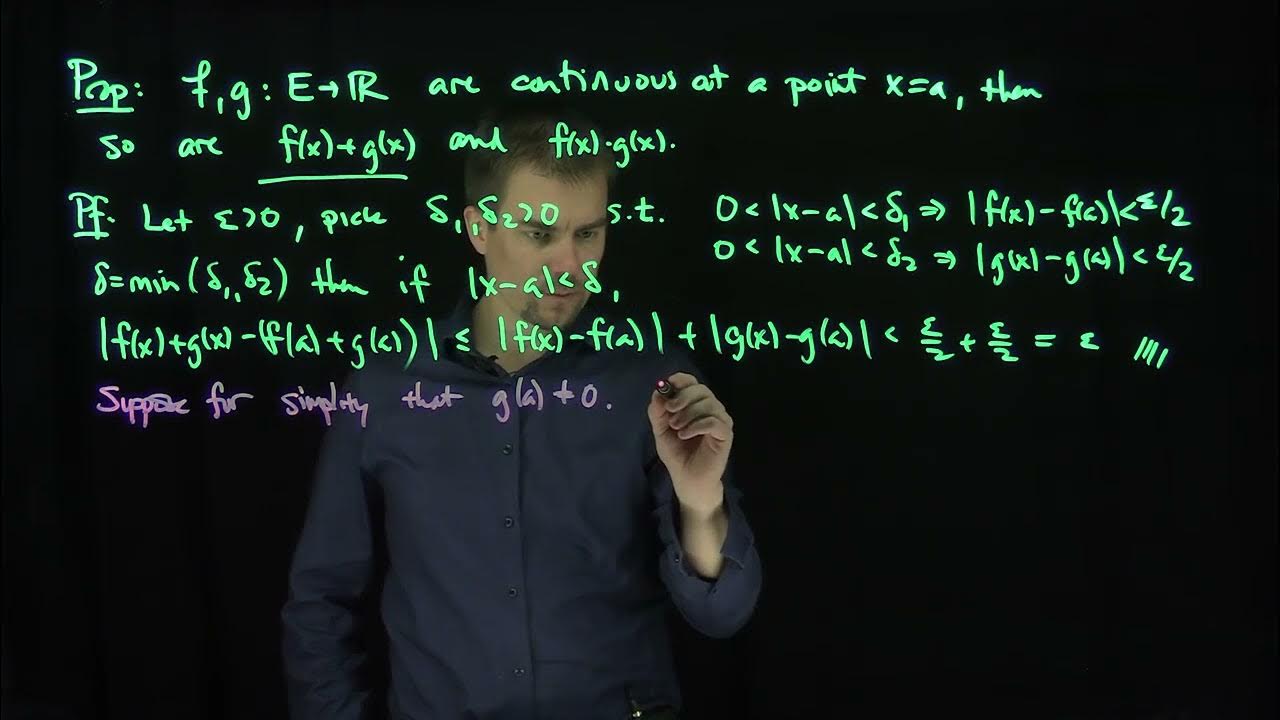 Prop: f, g : E → ℝ are continuous at a point x=a, then
so are f(x)+g(x) and f(x)·g(x).
Pf. Let ε>0, pick δ₁, δ₂>0 s.t. 0 < |x-a| < δ₁ ⇒ |f(x)-f(a)| < ε/2
0 < |x-a| < δ₂ ⇒ |g(x)-g(a)| < ε/2
δ=min(δ₁, δ₂) then if |x-a| < δ,
|f(x)+g(x)-(f(a)+g(a))| ≤ |f(x)-f(a)| + |g(x)-g(a)| < ε/2 + ε/2 = ε ////
Suppose for simplity that g(a) ≠ 0.